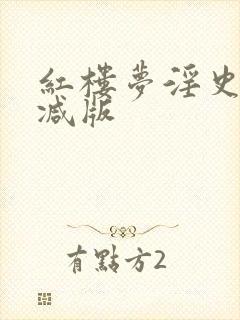 紅樓夢淫史
减版
有點方2